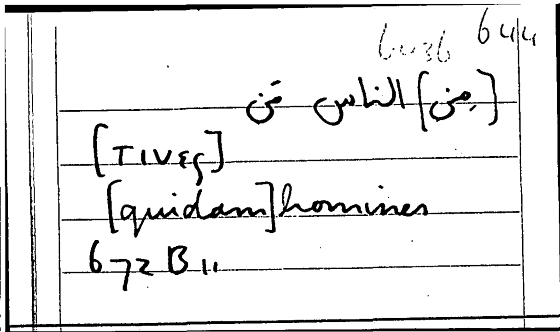 6436 644
[من] الناس مَن
[τινες]
[quidam] homines
672 B 11